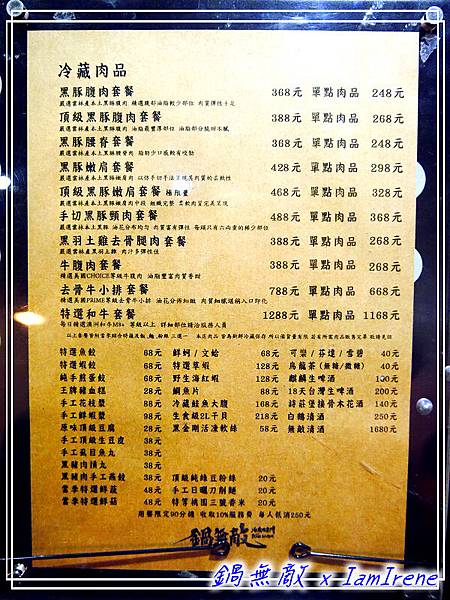 冷藏肉品
黑豚腹肉套餐 368元 單點肉品 248元
嚴選雲林產本土黑豚腹肉 精選腹部油脂較少部位 肉質彈性十足
頂級黑豚腹肉套餐 388元 單點肉品 268元
嚴選雲林產本土黑豚腹肉 油脂最豐厚部位 油脂部分脆甜不膩
黑豚腰脊套餐 388元 單點肉品 268元
嚴選雲林產本土黑豚腰脊肉 脂舫少口感較有咬勁
黑豚嫩肩套餐 428元 單點肉品 298元
頂級黑豚嫩肩套餐 極限量 468元 單點肉品 328元
手切黑豚頸肉套餐 488元 單點肉品 368元
黑羽土雞去骨腿肉套餐 388元 單點肉品 268元
嚴選雲林產黑羽土雞 肉汁多彈性佳
牛腹肉套餐 388元 單點肉品 268元
精選美國CHOICE等級牛腹肉 油脂豐富肉質香甜
去骨牛小排套餐 788元 單點肉品 668元
精選美國PRIME等級去骨牛小排 油花分佈細緻 肉質細膩堪稱入口即化
特選和牛套餐 1288元 單點肉品 1168元
每日精選澳洲和牛M8+ 等級以上 詳細部位請洽服務人員
特選魚餃 68元 鮮蚵 / 文蛤 68元 可樂 / 芬達 / 雪碧 40元
特選蝦餃 68元 特選草蝦 128元 烏龍茶(無糖/微糖) 40元
純手煎蛋餃 68元 野生海紅蝦 128元 麒麟生啤酒 100元
王牌豬血糕 28元 鯛魚片 78元 18天台灣生啤酒 200元
手工花枝漿 88元 冷藏鮭魚大腹 168元 詩莊堡接骨木花酒 140元
手工鮮蝦漿 98元 生食級2L干貝 218元 白鶴清酒 250元
原味頂級豆腐 28元 黑金剛活凍軟絲 58元 無敵清酒 1680元
手工頂級生豆皮 38元
手工虱目魚丸 38元
黑豬肉摃丸 38元
黑豬肉手工燕餃 38元 頂級純綠豆粉絲 20元
當季特選鮮蔬 48元 手工日曬刀削麵 20元
當季特選鮮菇 48元 特等桃園三號香米 20元
用餐限定90分鐘 收取10%服務費 每人低消250元
鍋無敵
鍋無敵 x IamIrene